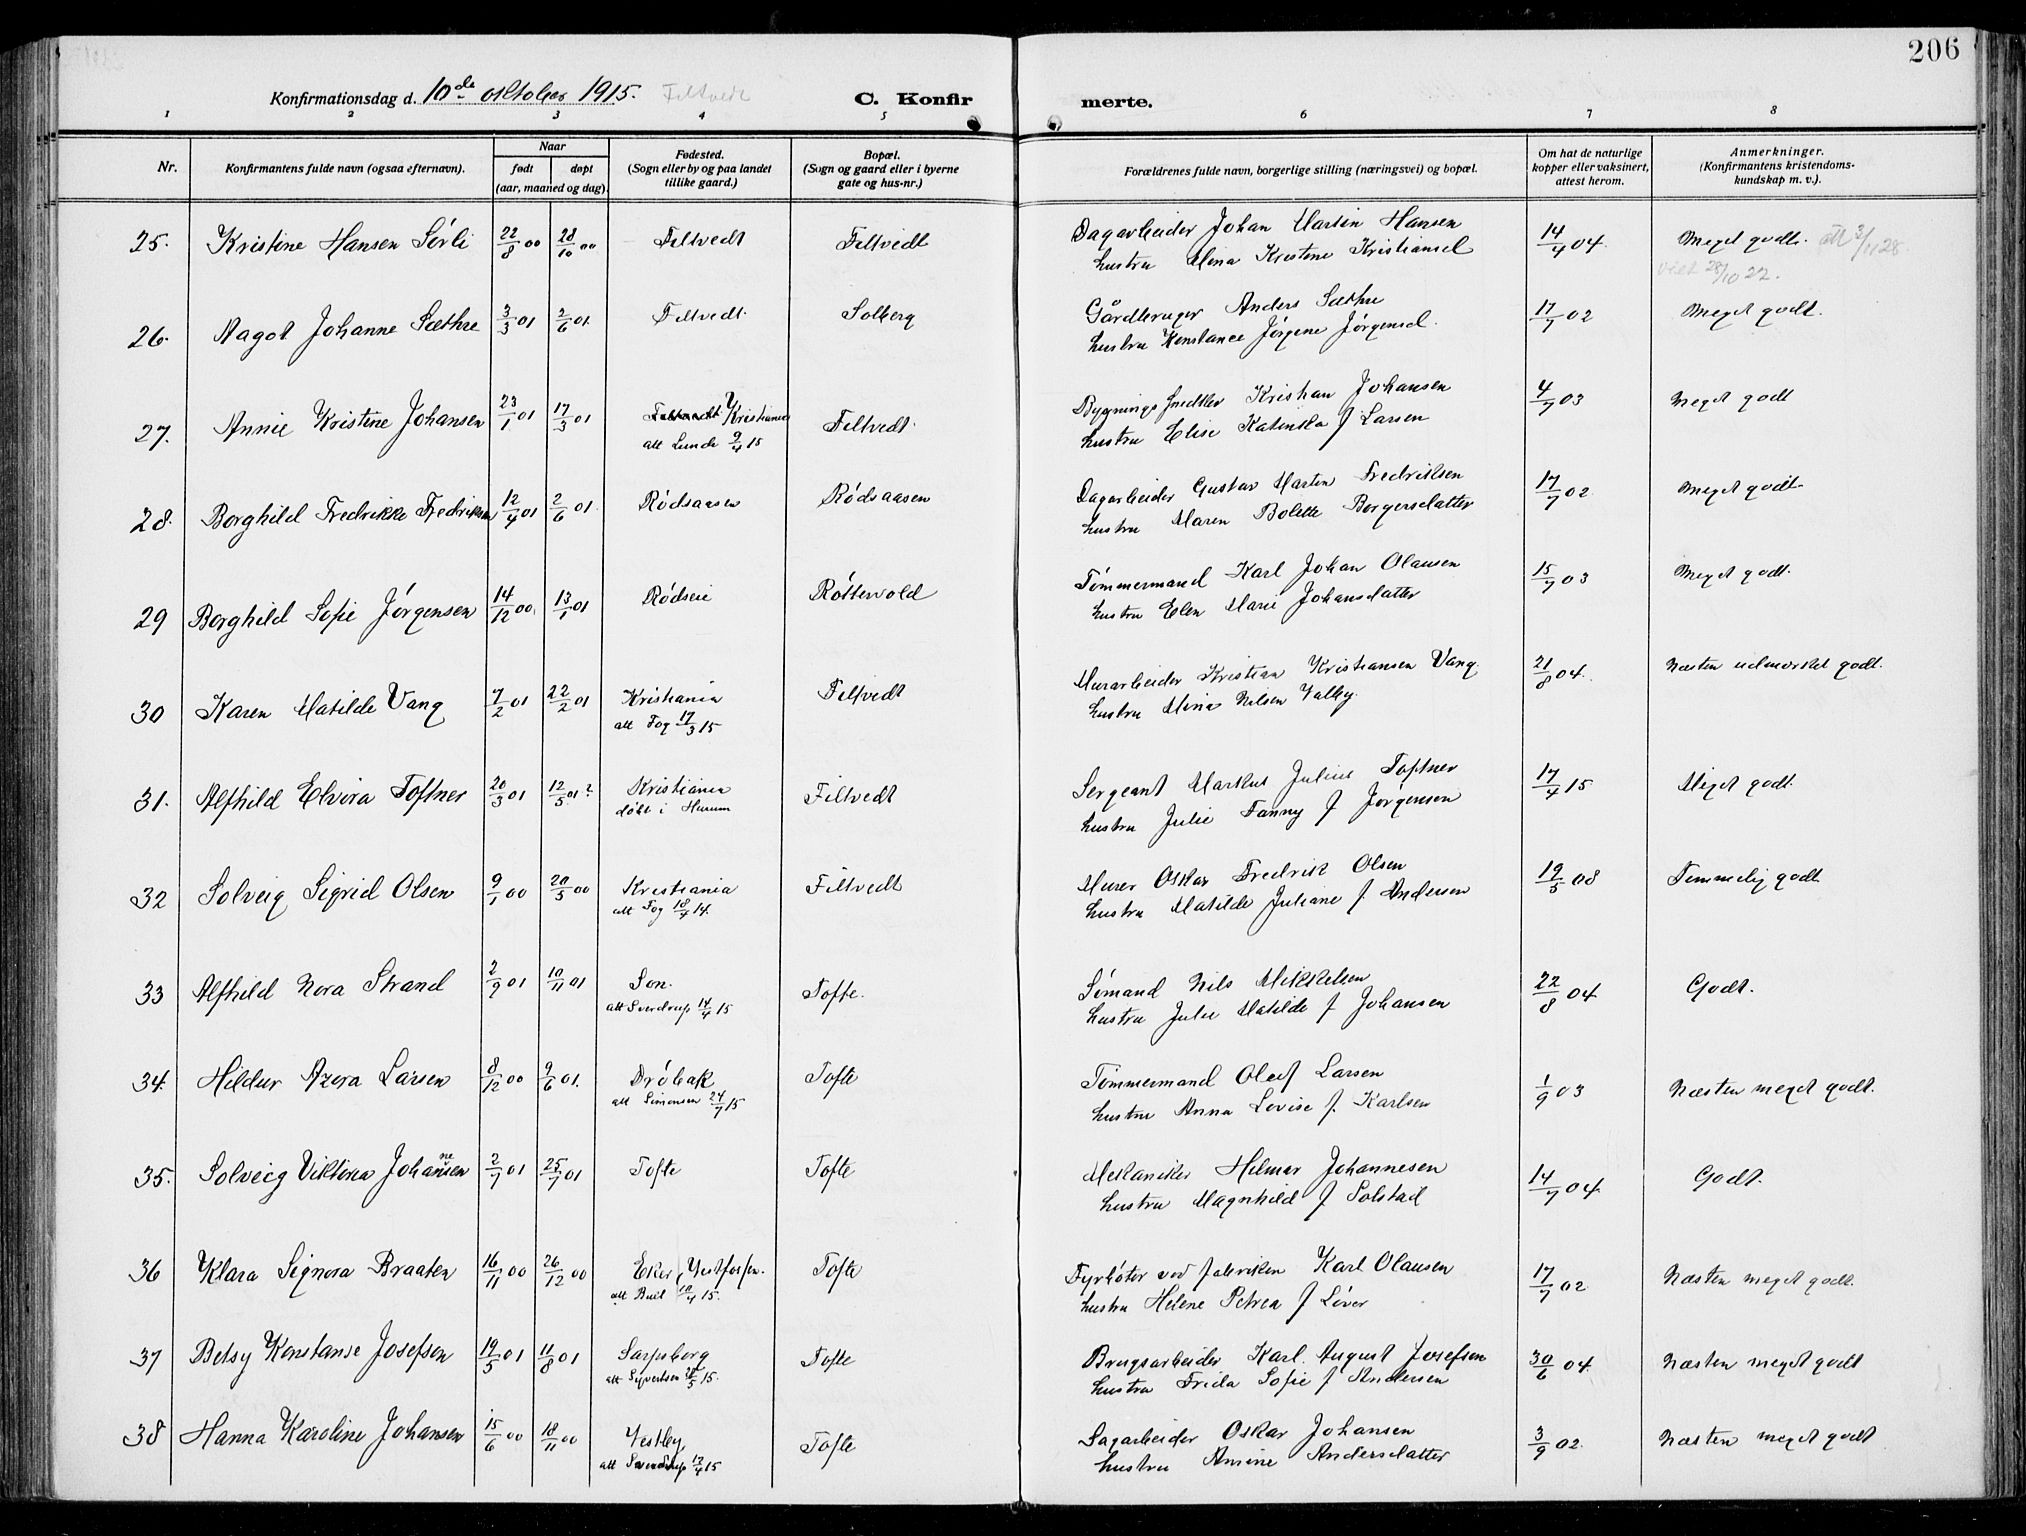 206
Konfirmationsdag d. 10de oktober 1915. Filtvedt
C. Konfir merte.
1 2 3 4 5 6 7 8
Nr. Konfirmantens fulde navn (ogsaa efternavn). Naar født døpt (aar, maaned og dag). Fødested. (Sogn eller by og paa landet tillike gaard.) Bopæl. (Sogn og gaard eller i byerne gate og hus-nr.) Forældrenes fulde navn, borgerlige stilling (næringsvei) og bopæl. Om hat de naturlige kopper eller vaksinert, attest herom. Anmerkninger. (Konfirmantens kristendoms-kundskap m. v.).
25. Kristine Hansen Sørli 22/8 00 28/10 00 Filtvedt Filtvedt Dagarbeider Johan Martin Hansen 14/4 04. Meget godt. att 3/11 28
hustru Mina Kristine Kristiansd viet 28/10 22.
26. Aagot Johanne Sæthre 3/3 01 2/6 01. Filtvedt Solberg Gårdbruger Anders Sæthre 17/7 02 Meget godt.
hustru Konstance Jørgene Jørgensd.
27. Annie Kristine Johansen 23/1 01 17/3 01 Filtvedt Kristiania Filtvedt Bygningssnedker Kristian Johansen 4/7 03 Meget godt
att Lunde 9/4 15 hustru Elise Katinka f Larsen
28. Borghild Fredrikke Fredriksen 12/4 01 2/6 01 Rødsaasen Rødsaasen Dagarbeider Gustav Martin Fredriksen 17/7 02 Meget godt.
hustru Maren Bolette Borgersdatter
29 Borghild Sofie Jørgensen 14/12 00. 13/1 01 Rødseie Røttevold Tømmermand Karl Johan Olausen 15/7 03 Meget godt.
hustru Elen Marie Johansdatter
30 Karen Matilde Vang 7/2 01 22/2 01 Kristiania Filtvedt Murarbeider Kristian Kristiansen Vang. 21/8 04. Næsten udmerket godt.
att Fog 17/3 15 hustru Mina Nilsen Valby.
31. Alfhild Elvira Toftner 20/3 01 12/5 01? Kristiania Filtvedt Sergeant Markus Julius Toftner 17/4 15 Meget godt.
døbt i Hurum hustru Julie Fanny f Jørgensen
32 Solveig Sigrid Olsen 9/1 00 20/5 00 Kristiania Filtvedt Murer Oskar Fredrik Olsen 19/5 08 Temmelig godt
att Fog 18/4 14. hustru Matilde Juliane f. Andersen
33 Alfhild Nora Strand 2/9 01 10/11 01 Son. Tofte. Sømand Nils Mikkelsen 22/8 04 Godt.
att Sverdrup 14/4 15 hustru Julie Matilde f Johansen
34. Hildur Azora Larsen 8/12 00 9/6 01. Drøbak Tofte Tømmermand Oluf Larsen 1/9 03 Næsten meget godt.
att Simonsen 24/7 15 hustru Anna Lovise f. Karlsen
35. Solveig Viktoria Johannesen 2/7 01 25/7 01 Tofte Tofte Mekaniker Hilmar Johannesen 14/7 04. Godt.
hustru Magnhild f Solstad
36 Klara Signora Braaten 16/11 00 26/12 00 Eker, Vestfossen. Tofte Fyrbøter ved fabriken Karl Olausen 17/7 02 Næsten meget godt.
att Buil 10/4 15. hustru Helene Petrea f Løver
37 Betsy Konstanse Josefson 19/5 01 11/8 01 Sarpsborg Tofte Brugsarbeider Karl August Josefson 30/6 04. Næsten meget godt
att Syvertsen 28/5 15. hustru Frida Sofie f Andersen
38 Hanna Karoline Johansen 15/6 00 18/11 00 Vestby Tofte Sagarbeider Oskar Johansen 3/9 02. Næsten meget godt
att Sverdrup 17/4 15 hustru Amine Andersdatter